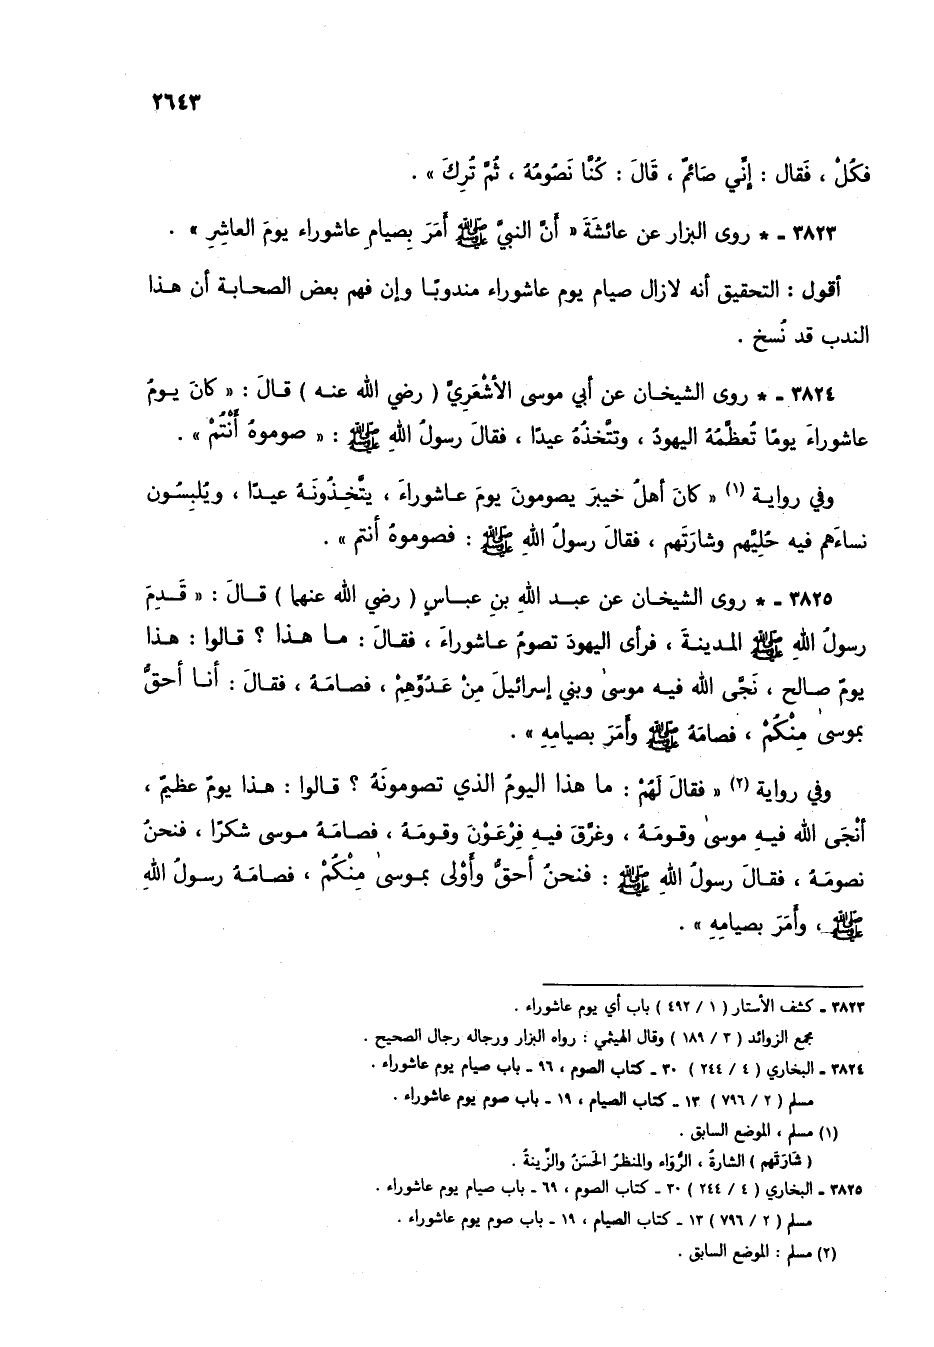 ٢٦٤٣
فكُلْ ، فَقال : إنِّي صَائمٌ ، قَالَ : كُنَّا نَصُومُهُ ، ثُمَّ تُرِكَ » .
٣٨٢٣ ـ * روى البزار عن عائشَةَ « أَنَّ النبيَّ ﷺ أَمَرَ بِصيامِ عاشوراء يومَ العاشِرِ » .
أقول : التحقيق أنه لازال صيام يوم عاشوراء مندوبًا وإن فهم بعض الصحابة أن هذا
الندب قد نُسخ .
٣٨٢٤ ـ * روى الشيخان عن أبي موسى الأَشْعَرِيِّ ( رضي الله عنه ) قالَ : « كانَ يومُ
عاشوراءَ يومًا تُعظِّمُهُ اليهودُ ، وتتَّخذُهُ عيدًا ، فقالَ رسولُ اللهِ ﷺ : « صوموهُ أَنْتُمْ » .
وفي رواية (١) « كانَ أهلُ خيبرَ يصومونَ يومَ عاشوراءَ ، يتَّخِذُونَهُ عيدًا ، ويُلبِسُون
نساءَهم فيه حُلِيَّهم وشارَتَهم ، فقالَ رسولُ اللهِ ﷺ : فصوموهُ أنتم » .
٣٨٢٥ ـ * روى الشيخان عن عبد اللهِ بنِ عباسٍ ( رضي الله عنهما ) قالَ : « قَدِمَ
رسولُ اللهِ ﷺ المدينةَ ، فرأى اليهودَ تصومُ عاشوراءَ ، فقالَ : ما هذا ؟ قالوا : هذا
يومٌ صالح ، نَجَّى الله فيه موسىٰ وبني إسرائيلَ مِنْ عَدُوِّهِمْ ، فصامَهُ ، فقالَ : أنا أحقُّ
بموسىٰ مِنْكُمْ ، فصامَهُ ﷺ وأَمَرَ بصيامِهِ » .
وفي رواية (٢) « فقالَ لَهُمْ : ما هذا اليومُ الذي تصومونَهُ ؟ قالوا : هذا يومٌ عظيمٌ ،
أنْجَى الله فيهِ موسىٰ وقومَهُ ، وغرَّقَ فيهِ فِرْعَوْنَ وقومَهُ ، فصامَهُ موسى شكرًا ، فنحنُ
نصومَهُ ، فقالَ رسولُ اللهِ ﷺ : فنحنُ أحقُّ وأَوْلى بموسىٰ مِنْكُمْ ، فصامَهُ رسولُ اللهِ
ﷺ ، وأَمَرَ بصيامِهِ » .
٣٨٢٣ ـ كشف الأستار ( ١ / ٤٩٢ ) باب أي يوم عاشوراء .
مجمع الزوائد ( ٣ / ١٨٩ ) وقال الهيثمي : رواه البزار ورجاله رجال الصحيح .
٣٨٢٤ ـ البخاري ( ٤ / ٢٤٤ ) ٣٠ ـ كتاب الصوم ، ٩٦ ـ باب صيام يوم عاشوراء .
مسلم ( ٢ / ٧٩٦ ) ١٣ ـ كتاب الصيام ، ١٩ ـ باب صوم يوم عاشوراء .
(١) مسلم ، الموضع السابق .
( شَارَتَهم ) الشارةُ ، الرُّوَاء والمنظرُ الحَسَنُ والزِّينةُ .
٣٨٢٥ ـ البخاري ( ٤ / ٢٤٤ ) ٣٠ ـ كتاب الصوم ، ٦٩ ـ باب صيام يوم عاشوراء .
مسلم ( ٢ / ٧٩٦ ) ١٣ ـ كتاب الصيام ، ١٩ ـ باب صوم يوم عاشوراء .
(٢) مسلم : الموضع السابق .